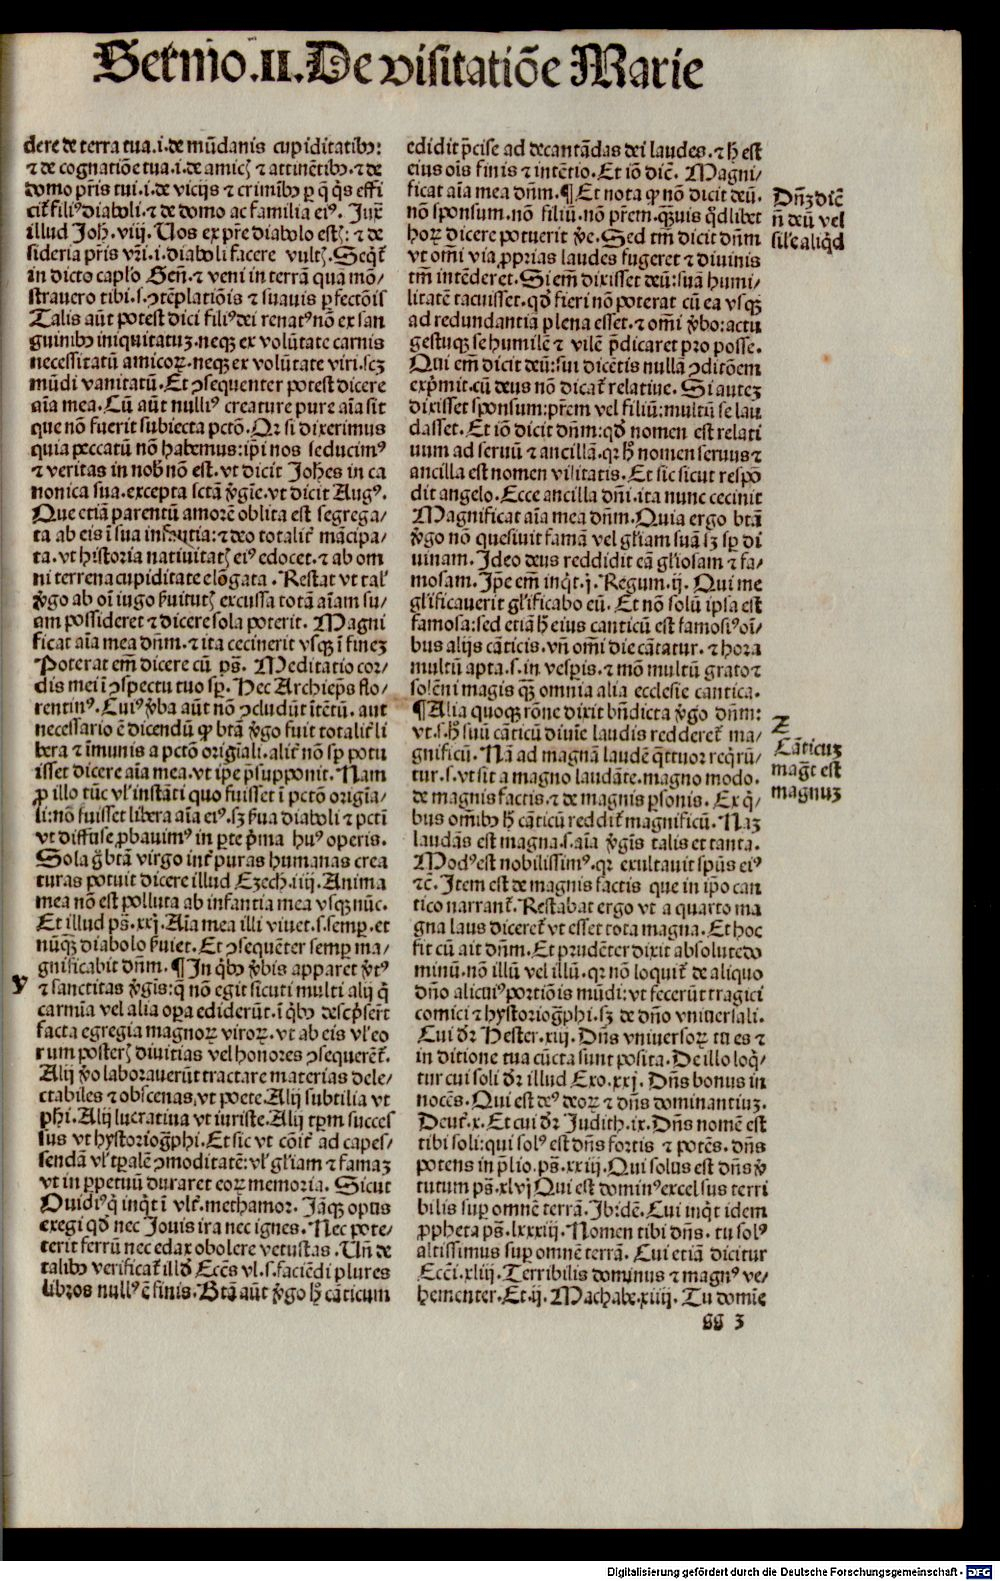 Sermo.II.De visitatiõe Marie
dere de terra tua.i.de mũdanis cupiditatibꝰ:
⁊ de cognatiõe tua.i.de amicꝭ ⁊ attinẽtibꝰ.⁊ de
domo pr̃is tui.i.de vicijs ⁊ crimibꝰ ꝑ q̃ q̃s effi
cit̃ filiꝰ diaboli.⁊ de domo ac familia eiꝰ. Juꝝ
illud Joh.viij. Uos ex pr̃e diabolo estꝭ: ⁊ de
sideria pris vr̃i.i.diaboli facere vultꝭ. Seqt̃
in dicto caplo Geñ.⁊ veni in terrã quã mõ-
stravero tibi.s.ↄtẽplatiõis ⁊ suavis ꝑfectõis
Talis aũt potest dici filiꝰ dei renatꝰ nõ ex san
guinibꝰ iniquitatuꝫ.neqꝫ ex volũtate carnis
necessitatũ amicoꝝ.neqꝫ ex volũtate viri.scꝫ
mũdi vanitatũ. Et ↄsequenter potest dicere
aĩa mea. Cũ aũt nulliꝰ creature pure aĩa sit
que nõ fuerit subiecta pctõ. Qr si dixerimus
quia peccatũ nõ habemus:ip̃i nos seducimꝰ
⁊ veritas in nob̃ nõ est.vt dicit Johẽs in ca
nonica sua.excepta sctã ỹgĩe.vt dicit Augꝰ.
Que etiã parentũ amorẽ oblita est segrega-
ta ab eis ĩ sua infantia:⁊ deo totalit̃ mãcipa-
ta.vt historia nativitatꝭ eiꝰ edocet.⁊ ab om
ni terrena cupiditate elõgata. Restat vt tal̃
ỹgo ab oĩ iugo ſ̃vitutꝭ excussa totã aĩam su-
am possideret ⁊ dicere sola poterit. Magni
ficat aĩa mea dñm.⁊ ita cecinerit vsqꝫ ĩ fineꝫ
Poterat em̃ dicere cũ ps̃. Meditatio cor-
dis mei ĩ ↄspectu tuo sꝑ. Hec Archiep̃s flo-
rentinꝰ. Cuiꝰ ỹba aũt nõ ↄcludũt ĩtẽtũ. aut
necessario ẽ dicendũ ꝙ btã ỹgo fuit totalit̃ li
bera ⁊ ĩmunis a pctõ origĩali.alit̃ nõ sꝑ potu
isset dicere aĩa mea.vt ip̃e p̃supponit. Nam
ꝓ illo tũc vl̃ instãti quo fuisset ĩ pctõ origĩa-
li:nõ fuisset libera aĩa eiꝰ.sꝫ ſ̃ua diaboli ⁊ pcti
vt diffuse ꝓbavimꝰ in ꝑte p̃ma huiꝰ operis.
Sola g̃ btã virgo int̃ puras humanas crea
turas potuit dicere illud Ezech.iiij. Anima
mea nõ est polluta ab infantia mea vsqꝫ nũc.
Et illud ps̃.xxj. Aĩa mea illi vivet.s.semꝑ.et
nũqꝫ diabolo ſ̃uiet. Et ↄsequẽter semꝑ ma-
gnificabit dñm. ¶ In qbꝰ ỹbis apparet ỹtꝰ
Y
⁊ sanctitas ỹgĩs:q̃ nõ egit sicuti multi alij q̃
carmĩa vel alia oꝑa ediderũt.ĩ qbꝰ descp̃serũt
facta egregia magnoꝝ viroꝝ.vt ab eis vl̃ eo
rum posterꝭ divitias vel honores ↄsequerẽt̃.
Alij ỹo laboraverũt tractare materias dele-
ctabiles ⁊ obscenas,vt poete. Alij subtilia vt
ph̃i. Alij lucrativa vt iuriste. Alij tꝑm succes
sus vt hystoriogp̃hi. Et sic vt cõit̃ ad capes-
sendã vl̃ tꝑalẽ ↄmoditatẽ:vl̃ gl̃iam ⁊ famaꝫ
vt in ꝑpetuũ duraret eoꝝ memoria. Sicut
Ovidiꝰ q̃ inqt ĩ vlt̃.methamor. Jãqꝫ opus
exegi qd̃ nec Jovis ira nec ignes. Nec pote-
terit ferrũ nec edax obolere vetustas. Uñ de
talibꝰ verificat̃ illd̃ Ecc̃s vl.s.faciẽdi plures
libros nullꝰ ẽ finis. Btã aũt ỹgo hꝫ cãticum
edidit p̃cise ad decantãdas dei laudes.⁊ h̃ est
eius oĩs finis ⁊ intẽtio. Et iõ dic̃. Magni-
ficat aĩa mea dñm. ¶ Et nota ꝙ nõ dicit deũ.
Dñꝫ dic̃
ñ deũ vel
sil̃e aliqd
nõ sponsum.nõ filiũ.nõ pr̃em.qꝫuis qdlibet
hoꝝ dicere potuerit ỹe. Sed tm̃ dicit dñm
vt omĩ via ꝓprias laudes fugeret ⁊ divinis
tm̃ intẽderet. Si em̃ dixisset deũ:suã humi-
litatẽ tacuisset.qd̃ fieri nõ poterat cũ ea vsqꝫ
ad redundantiã plena esset.⁊ omĩ ỹbo:actu
gestuqꝫ se humilẽ ⁊ vilẽ p̃dicaret pro posse.
Qui em̃ dicit deũ:sui dicẽtis nullã ↄditõem
exp̃mit.cũ deus nõ dicat̃ relative. Si auteꝫ
dixisset sponsum:pr̃em vel filiũ:multũ se lau
dasset. Et iõ dicit dñm:qd̃ nomen est relati
vum ad servũ ⁊ ancillã.qr h̃ nomen servus ⁊
ancilla est nomen vilitatis. Et sic sicut respõ
dit angelo. Ecce ancilla dñi.ita nunc cecinit
Magnificat aĩa mea dñm. Quia ergo btã
ỹgo nõ quesivit famã vel gl̃iam suã sꝫ sꝑ di
vinam. Ideo deus reddidit eã gl̃iosam ⁊ fa-
mosam. Ip̃e em̃ inqt.j. Regum.ij. Qui me
gl̃ificaverit gl̃ificabo eũ. Et nõ solũ ipsa est
famosa:sed etiã h̃ eius canticũ est famosiꝰ oĩ-
bus alijs cãticis.vñ omĩ die cãtatur.⁊ hora
multũ apta.s.in vesꝑis.⁊ mõ multũ grato ⁊
solẽni magis qꝫ omnia alia ecclesie cantica.
¶ Alia quoqꝫ rõne dixit bñdicta ỹgo dñm:
Z
Cãticuꝫ
mag̃t est
magnuꝫ
vt.s.h̃ suũ cãticũ divĩe laudis redderet̃ ma-
gnificũ. Nã ad magnã laudẽ q̃ttuor reqrũ-
tur.s.vt sit a magno laudãte.magno modo.
de magnis factis.⁊ de magnis ꝑsonis. Ex q̃-
bus omĩbꝰ h̃ cãticũ reddit̃ magnificũ. Naꝫ
laudãs est magna.s.aĩa ỹgĩs talis et tanta.
Modꝰ est nobilissimꝰ.qr exultavit spũs eiꝰ
⁊c̃. Item est de magnis factis que in ip̃o can
tico narrant̃. Restabat ergo vt a quarto ma
gna laus diceret̃ vt esset tota magna. Et hoc
fit cũ ait dñm. Et prudẽter dixit absolute do
minũ.nõ illũ vel illũ.qr nõ loquit̃ de aliquo
dño alicuiꝰ portiõis mũdi:vt fecerũt tragici
comici ⁊ hystoriogp̃hi.sꝫ de dño vniversali.
Cui dr̃ Hester.xiij. Dñs vniversoꝝ tu es ⁊
in ditione tua cũcta sunt posita. De illo loq̃-
tur cui soli dr̃ illud Exo.xxj. Dñs bonus in
nocẽs. Qui est deꝰ deoꝝ ⁊ dñs dominantiuꝫ.
Deut̃.x. Et cui dr̃ Judith.ix. Dñs nomẽ est
tibi soli:qui solꝰ est dñs fortis ⁊ potẽs. dñs
potens in p̃lio.ps̃.xxiij. Qui solus est dñs ỹ
tutum ps̃.xlvj Qui est dominꝰ excelsus terri
bilis suꝑ omnẽ terrã. Ibidẽ. Cui inqt idem
ꝓpheta ps̃.lxxxiij. Nomen tibi dñs. tu solꝰ
altissimus suꝑ omnẽ terrã. Cui etiã dicitur
Ecc̃i.xliij. Terribilis dominus ⁊ magnꝰ ve-
hementer. Et.ij. Machabe.xiiij. Tu domĩe
gg 3
Digitalisierung gefördert durch die Deutsche Forschungsgemeinschaft - DFG